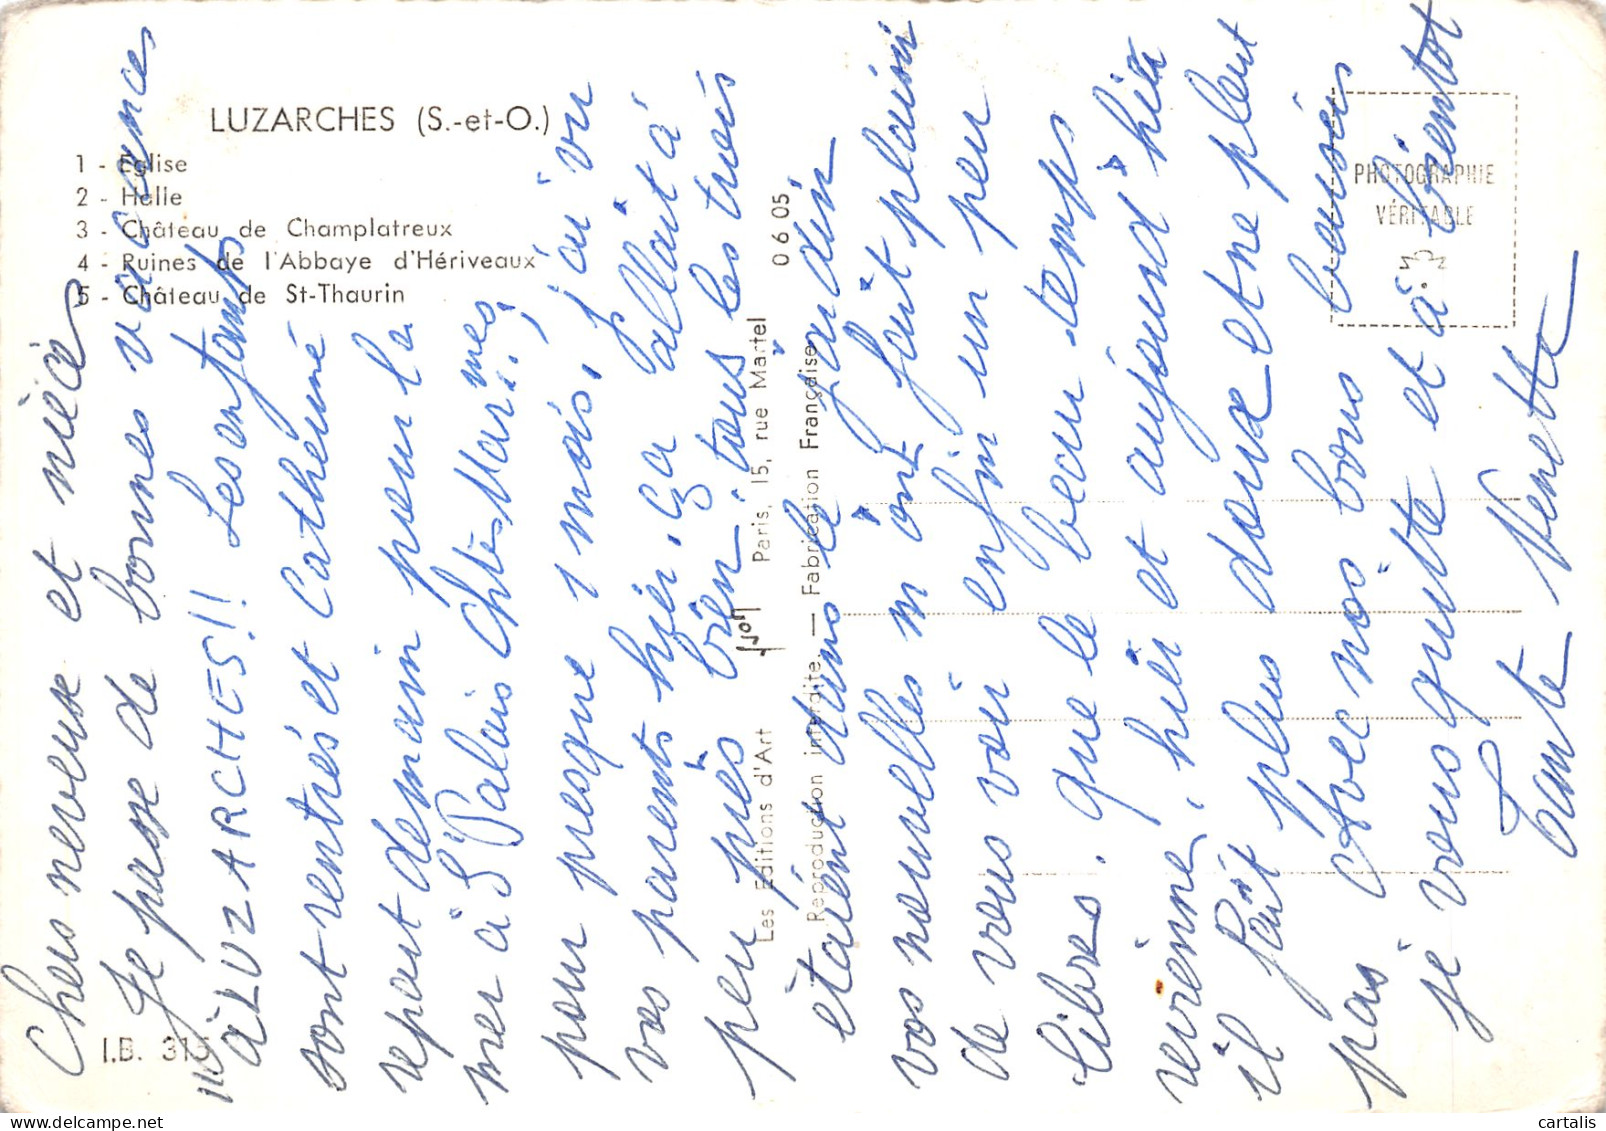 LUZARCHES (S.-et-O.)
1 - Eglise
2 - Halle
3 - Château de Champlatreux
4 - Ruines de l'Abbaye d'Hériveaux
5 - Château de St-Thaurin
I.B. 315
Les Editions d'Art Yvon Paris, 15, rue Martel 0 6 05
Reproduction interdite. — Fabrication Française
PHOTOGRAPHIE
VÉRITABLE
Chers neveux et nièces
Je passe de bonnes vacances
à LUZARCHES!! Les enfants
sont rentrés et Catherine
repart demain pour la
mer à St Palais Chte-Mar.; mes
pour presque 1 mois, j'ai vu
vos parents hier, ça allait à
peu près bien, tous les trois
étaient dans le jardin
vos nouvelles m'ont fait plaisir
de vous voir enfin un peu
libres, que le beau temps
revienne, hier et aujourd'hui
il fait plus doux et ne pleut
pas Avec nos bons baisers
je vous quitte et à bientot
Tante Venette
cartalis